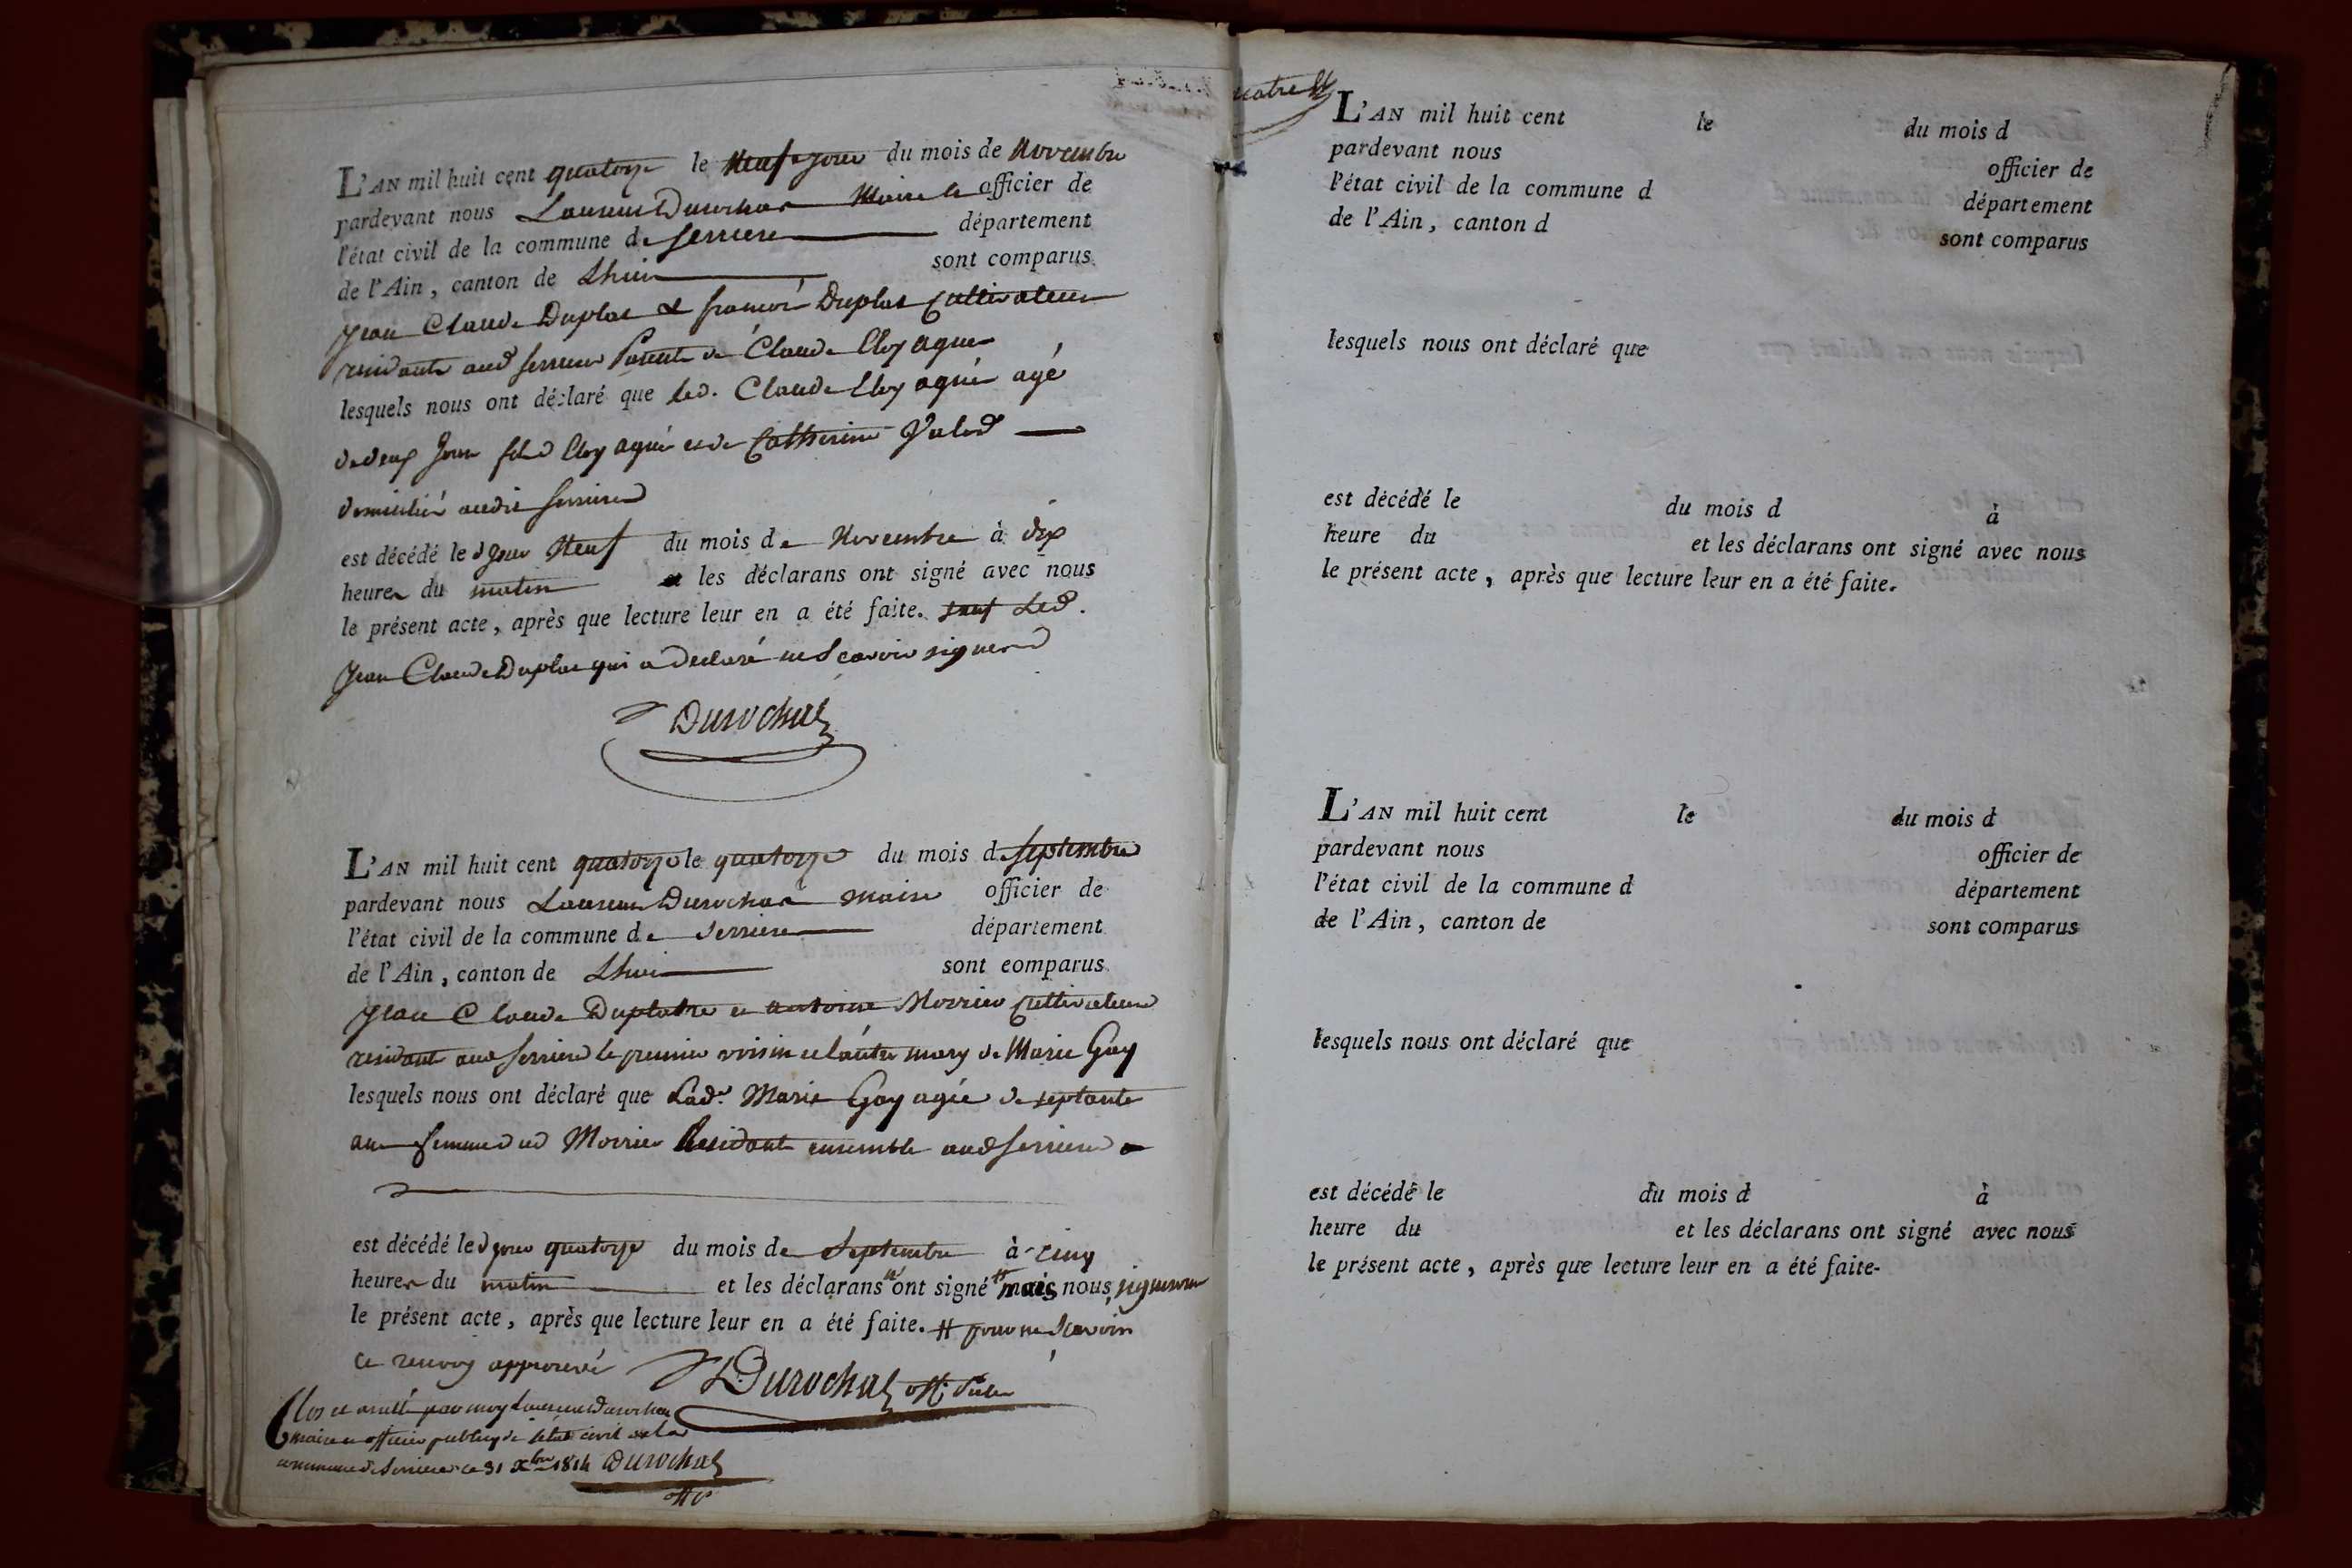 L'AN mil huit cent quatorze le Neuf jour du mois de Novembre
pardevant nous Laurent Durochat Maire officier de
l'état civil de la commune de Serriere département
de l'Ain, canton de Lhuis sont comparus
Jean Claude Duplat & françois Duplat Cultivateurs
residants aud Serriere Parents de Claude Eloy aguié
lesquels nous ont déclaré que led. Claude Eloy aguié agé
de deux jours fils d'Eloy aguié et de Catherine
domicilié audit Serriere
est décédé led jour Neuf du mois de Novembre à dix
heures du matin et les déclarans ont signé avec nous
le présent acte, après que lecture leur en a été faite. sauf Led.
Jean Claude Duplat qui a declaré ne Scavoir signer
Durochat
L'AN mil huit cent quatorze le quatorze du mois de Septembre
pardevant nous Laurent Durochat maire officier de
l'état civil de la commune de Serriere département
de l'Ain, canton de Lhuis sont comparus
Jean Claude Duplatre et antoine Morrier Cultivateurs
residants aud Serriere le premier voisin et l'autre mary de Marie Gay
lesquels nous ont déclaré que Lade Marie Gay agée de septante
ans femme dud Morrier Residants ensemble aud Serriere
est décédé led jour quatorze du mois de Septembre à cinq
heures du matin et les déclarans n'ont signé # mais nous signerons
le présent acte, après que lecture leur en a été faite. # pour ne Scavoir
ce renvoy approuvé Durochat off.
Clos et arrêté par moy Laurent Durochat
maire et officier publicq de l'état civil de la
commune de Serriere ce 31 Xbre 1814 Durochat
L'AN mil huit cent le du mois d
pardevant nous officier de
l'état civil de la commune d département
de l'Ain, canton d sont comparus
lesquels nous ont déclaré que
est décédé le du mois d à
heure du et les déclarans ont signé avec nous
le présent acte, après que lecture leur en a été faite.
L'AN mil huit cent le du mois d
pardevant nous officier de
l'état civil de la commune d département
de l'Ain, canton de sont comparus
lesquels nous ont déclaré que
est décédé le du mois d à
heure du et les déclarans ont signé avec nous
le présent acte, après que lecture leur en a été faite.